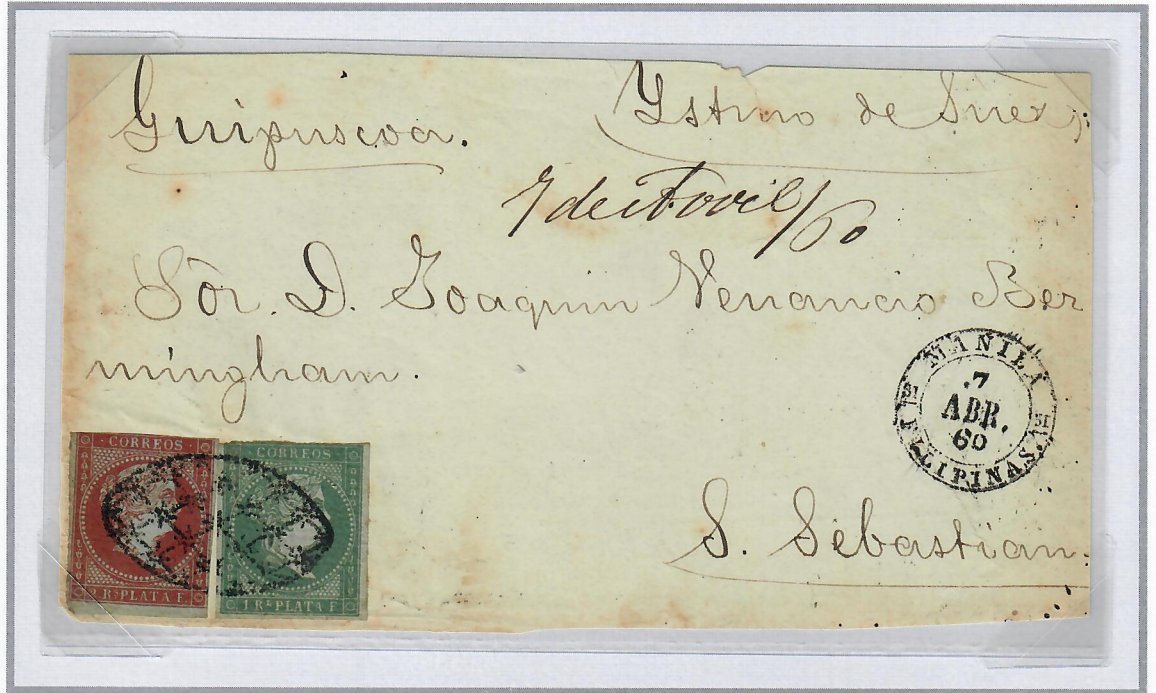 Guipuscoa.
(Ystmo de Suez).
7 de Abril/60
Sôr. D. Joaquin Venancio Ber
mingham.
MANILA
7
ABR.
60
FILIPINAS.
CORREOS
Rs PLATA F.
CORREOS
1 Rl PLATA F.
S. Sebastian.